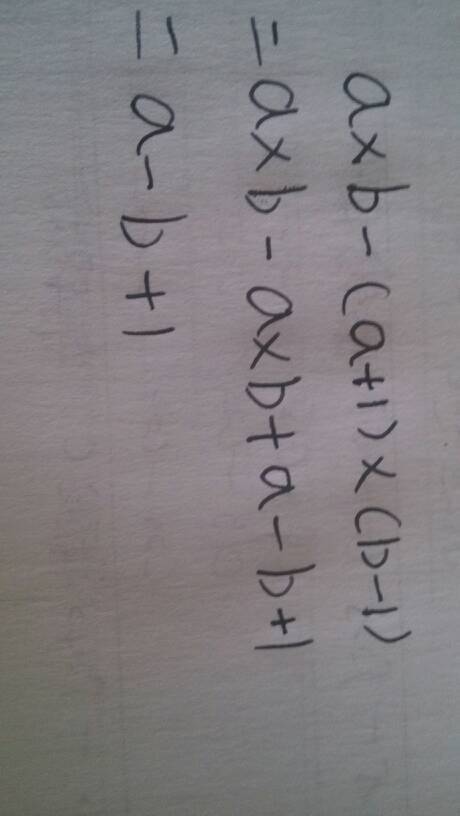 a×b-(a+1)×(b-1)
=a×b-a×b+a-b+1
=a-b+1